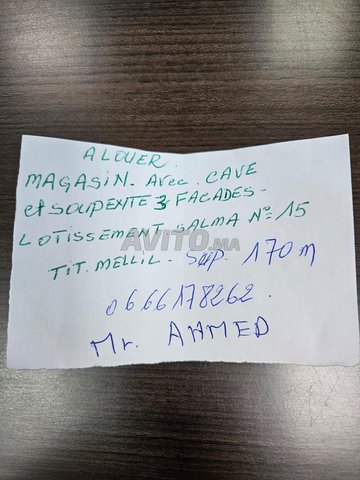 A LOUER.
MAGASIN. Avec. CAVE
et SOUPENTE 3 FACADES-
LOTISSEMENT SALMA Nº=15
TIT. MELLIL. Sup. 170m
0666178262.
Mr. AHMED
AVITO.MA